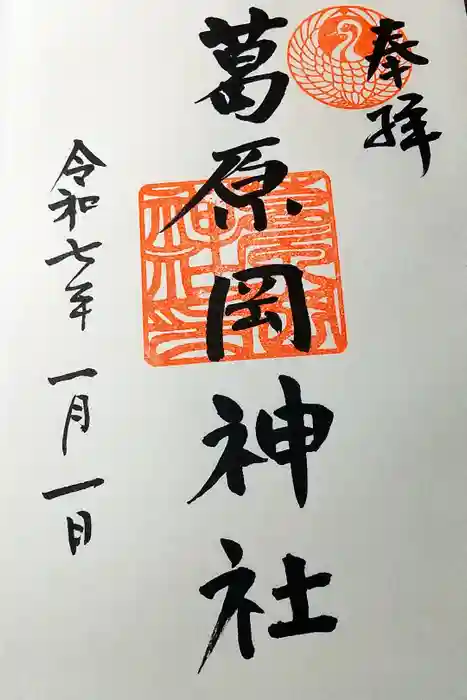 奉拝
葛原岡神社
令和七年一月一日